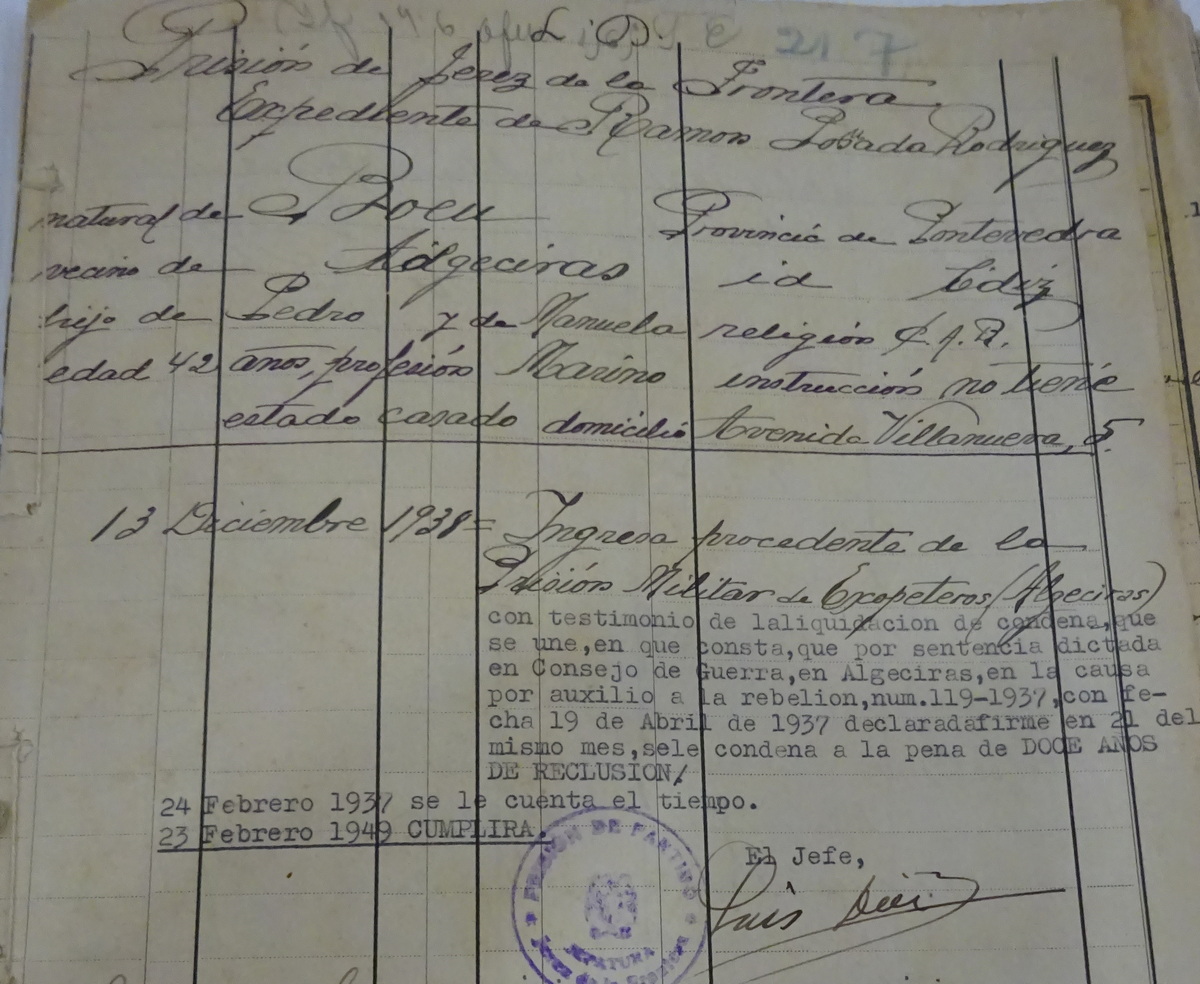 217
Prisión de Jerez de la Frontera
Expediente de Ramon Posada Rodriguez
natural de Bueu Provincia de Pontevedra
vecino de Algeciras id Cádiz
hijo de Pedro y de Manuela religión C.A.R.
edad 42 años, profesión Marino instrucción no tiene
estado casado domicilio Avenida Villanueva, 5
13 Diciembre 1938= Ingresa procedente de la
Prisión Militar de Escopeteros (Algeciras)
con testimonio de laliquidacion de condena,que
se une,en que consta,que por sentencia dictada
en Consejo de Guerra,en Algeciras,en la causa
por auxilio a la rebelion,num.119-1937,con fe-
cha 19 de Abril de 1937 declaradafirme en 21 del
mismo mes,sele condena a la pena de DOCE AÑOS
DE RECLUSION/
24 Febrero 1937 se le cuenta el tiempo.
23 Febrero 1949 CUMPLIRA.
El Jefe,
Luis
PRISION DE PARTIDO
JEFATURA
Jerez de la Frontera